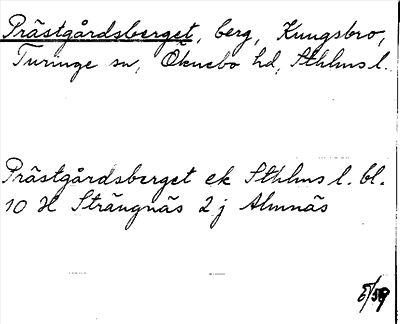 Prästgårdsberget, berg, Kungsbro,
Turinge sn, Öknebo hd, Sthlms l.
Prästgårdsberget ek Sthlms l. bl.
10 H Strängnäs 2 j Almnäs